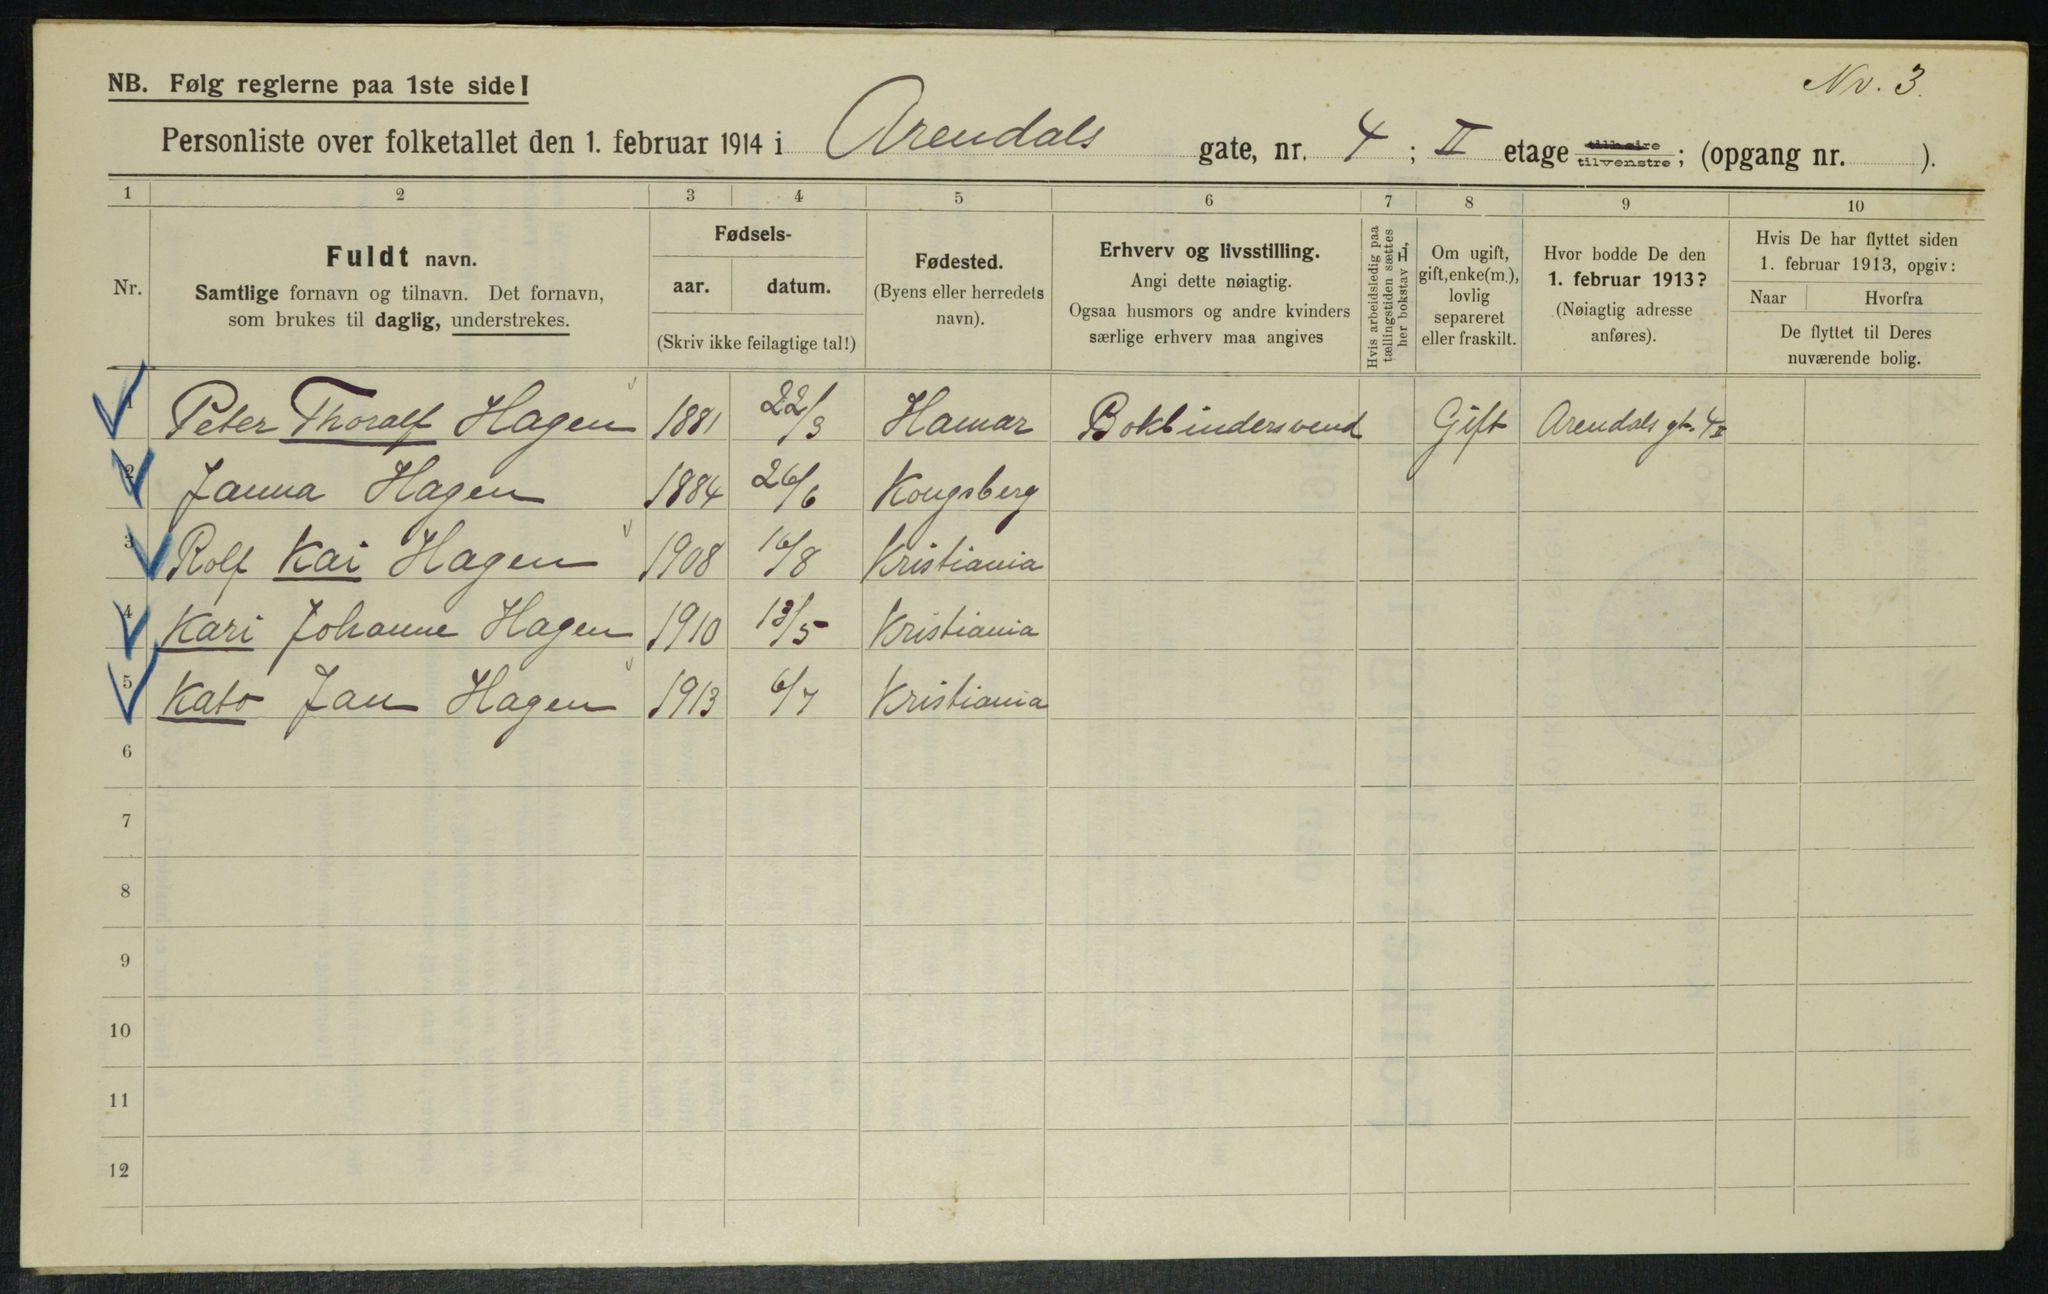 Nr. 3.
NB. Følg reglerne paa 1ste side!
Personliste over folketallet den 1. februar 1914 i Arendals gate, nr. 4; II etage tilhøire tilvenstre; (opgang nr. ).
1 2 3 4 5 6 7 8 9 10
Nr.
Fuldt navn.
Samtlige fornavn og tilnavn. Det fornavn,
som brukes til daglig, understrekes.
Fødsels-
aar. datum.
(Skriv ikke feilagtige tal!)
Fødested.
(Byens eller herredets
navn).
Erhverv og livsstilling.
Angi dette nøiagtig.
Ogsaa husmors og andre kvinders
særlige erhverv maa angives
Hvis arbeidsledig paa
tællingstiden sættes
her bokstav L,
Om ugift,
gift, enke(m.),
lovlig
separeret
eller fraskilt.
Hvor bodde De den
1. februar 1913?
(Nøiagtig adresse
anføres).
Hvis De har flyttet siden
1. februar 1913, opgiv:
Naar Hvorfra
De flyttet til Deres
nuværende bolig.
1 Peter Thoralf Hagen 1881 22/3 Hamar Bokbindersvend Gift Arendals gt. 4 II
2 Janna Hagen 1884 26/6 Kongsberg
3 Rolf Kai Hagen 1908 16/8 Kristiania
4 Kari Johanne Hagen 1910 13/5 Kristiania
5 Kato Jan Hagen 1913 6/7 Kristiania
6
7
8
9
10
11
12